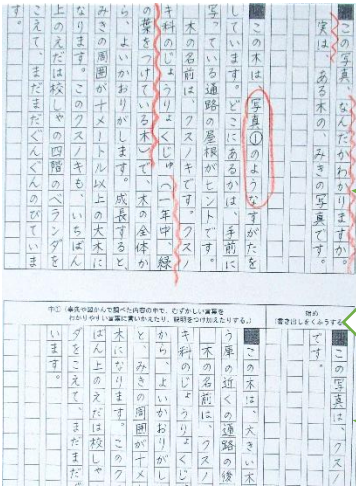 この写真、なんだかわかりますか。
実は、ある木の、みきの写真です。
この木は、写真①のようなすがたを
しています。どこにあるかは、手前に
写っている通路の屋根がヒントです。
木の名前は、クスノキです。クスノ
キ科のじょうりょくじゅ（一年中、緑
の葉をつけている木）で、木の全体か
ら、よいかおりがします。成長すると、
みきの周囲が十メートル以上の大木に
なります。このクスノキも、いちばん
上のえだは校しゃの四階のベランダを
こえて、まだまだぐんぐんのびていま
す。
初め
（書き出しをくふうする
この写真
です。
中①（事典や図かんで調べた内容の中で、むずかしい言葉を
わかりやすい言葉に言いかえたり、説明をつけ加えたりする。）
この木は、大きい木
う庫の近くの通路の後
木の名前は、クスノ
キ科のじょうりょくじ
から、よいかおりがし
と、みきの周囲が十メ
木になります。このク
ばん上のえだは校しゃ
ダをこえて、まだまだ
います。